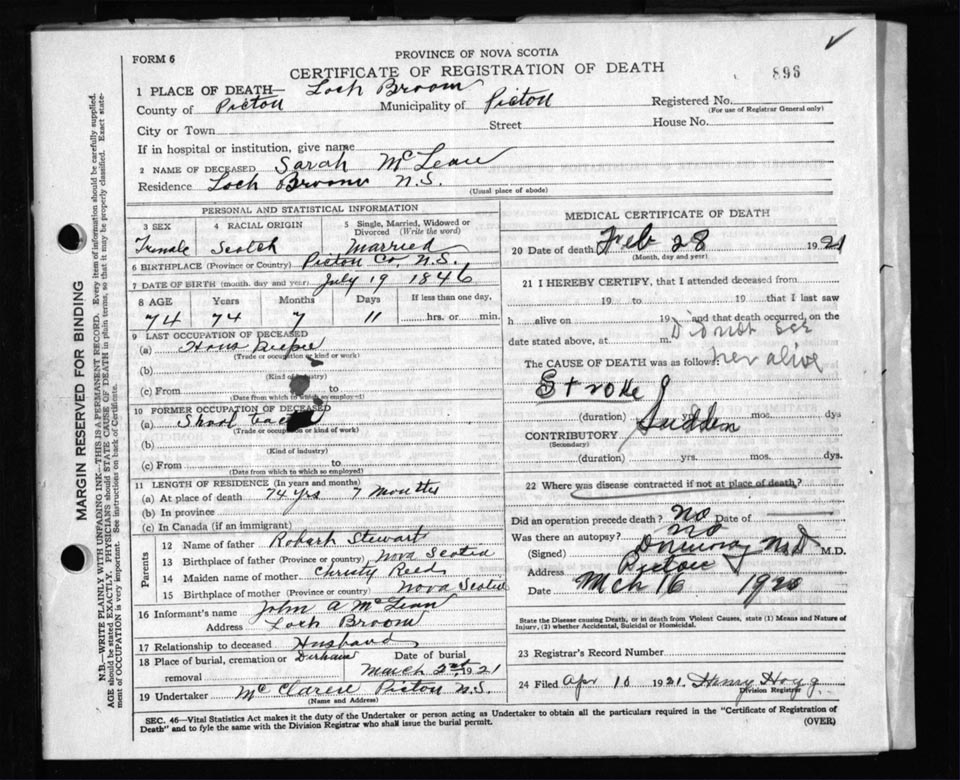 FORM 6
PROVINCE OF NOVA SCOTIA
CERTIFICATE OF REGISTRATION OF DEATH
896
1 PLACE OF DEATH— Loch Broom
County of Pictou Municipality of Pictou Registered No.
(For use of Registrar General only)
City or Town Street House No.
If in hospital or institution, give name
2 NAME OF DECEASED Sarah McLean
Residence Loch Broom N.S. (Usual place of abode)
PERSONAL AND STATISTICAL INFORMATION
3 SEX 4 RACIAL ORIGIN 5 Single, Married, Widowed or Divorced (Write the word)
Female Scotch Married
6 BIRTHPLACE (Province or Country) Pictou Co, N.S.
7 DATE OF BIRTH (month, day and year) July 19 1846
8 AGE Years Months Days If less than one day,
74 74 7 11 hrs. or min.
9 LAST OCCUPATION OF DECEASED
(a) Hous
(Trade or occupation or kind of work)
(b)
(Kind of industry)
(c) From to
(Date from which to which so employed)
10 FORMER OCCUPATION OF DECEASED
(a) Skool
(Trade or occupation or kind of work)
(b)
(Kind of industry)
(c) From to
(Date from which to which so employed)
11 LENGTH OF RESIDENCE (In years and months)
(a) At place of death 74 yrs 7 months
(b) In province
(c) In Canada (if an immigrant)
Parents
12 Name of father Robart Stewart
13 Birthplace of father (Province or country) Nova Scotia
14 Maiden name of mother Christy Reed
15 Birthplace of mother (Province or country) Nova Scotia
16 Informant's name John A McLean
Address Loch Broom
17 Relationship to deceased Husband
18 Place of burial, cremation or removal Durham Date of burial March 2nd, 1921
19 Undertaker Pictou N.S.
(Name and Address)
MEDICAL CERTIFICATE OF DEATH
20 Date of death Feb 28 1921
(Month, day and year)
21 I HEREBY CERTIFY, that I attended deceased from
19 to 19 that I last saw
h alive on 19 and that death occurred, on the
date stated above, at m. Did not see
The CAUSE OF DEATH was as follows: her alive
Stroke
(duration) yrs. mos. dys
Sudden
CONTRIBUTORY
(Secondary)
(duration) yrs. mos. dys.
22 Where was disease contracted if not at place of death?
Did an operation precede death? No Date of
Was there an autopsy? No
(Signed) M.D. M.D.
Address Pictou
Date Mch 16 1920
State the Disease causing Death, or in death from Violent Causes, state (1) Means and Nature of
Injury, (2) whether Accidental, Suicidal or Homicidal.
23 Registrar's Record Number
24 Filed Apr 10 1921. Henry
Division Registrar
SEC. 46—Vital Statistics Act makes it the duty of the Undertaker or person acting as Undertaker to obtain all the particulars required in the "Certificate of Registration of
Death" and to fyle the same with the Division Registrar who shall issue the burial permit. (OVER)
MARGIN RESERVED FOR BINDING
N.B.—WRITE PLAINLY WITH UNFADING INK—THIS IS A PERMANENT RECORD. Every item of information should be carefully supplied.
AGE should be stated EXACTLY. PHYSICIANS should STATE CAUSE OF DEATH in plain terms, so that it may be properly classified. Exact state-
ment of OCCUPATION is very important. See instructions on back of Certificate.